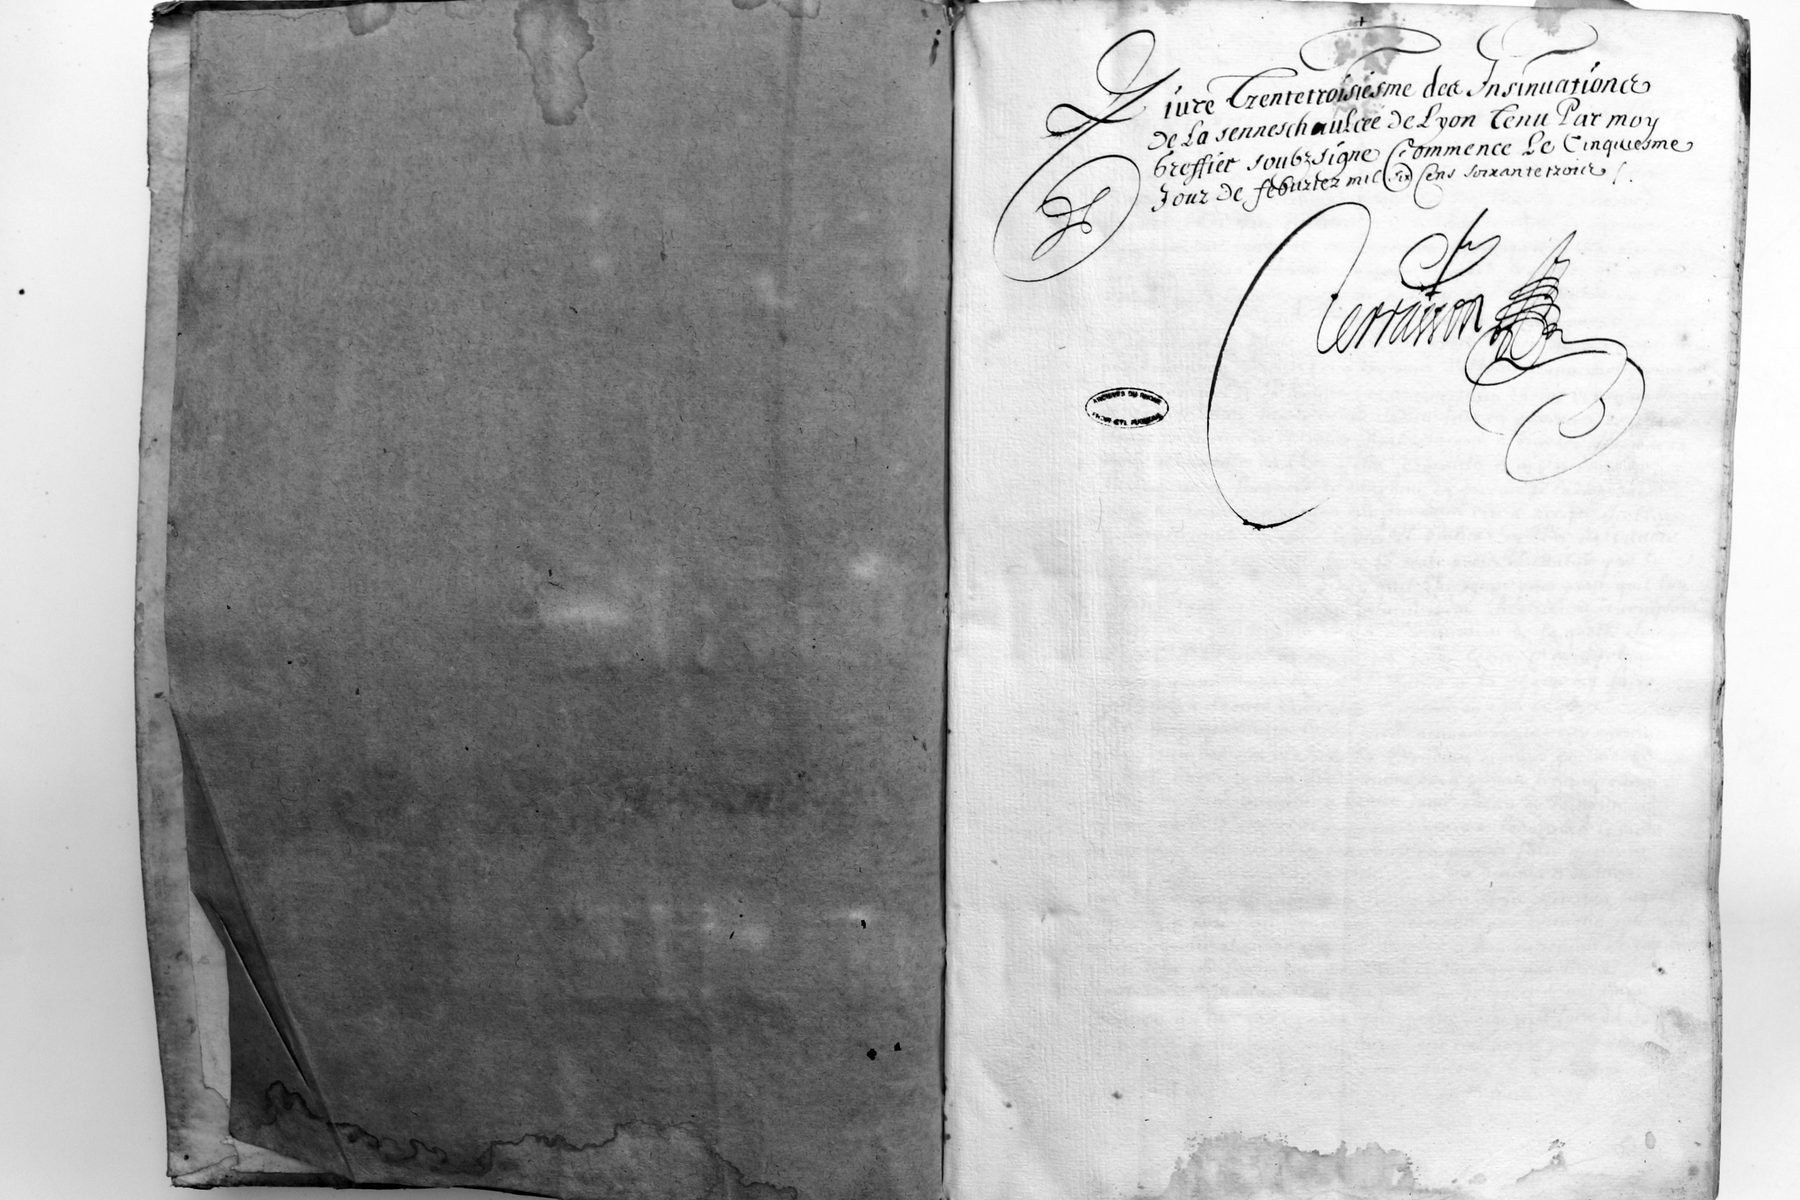 Livre Trentetroisiesme des Insinuations
de La senneschaulcée de Lyon Tenu Par moy
Greffier soubzsigne Commence Le Cinquiesme
Jour de feburier mil six Cens soixantetrois /.
Terrasson
ARCHIVES DU RHONE